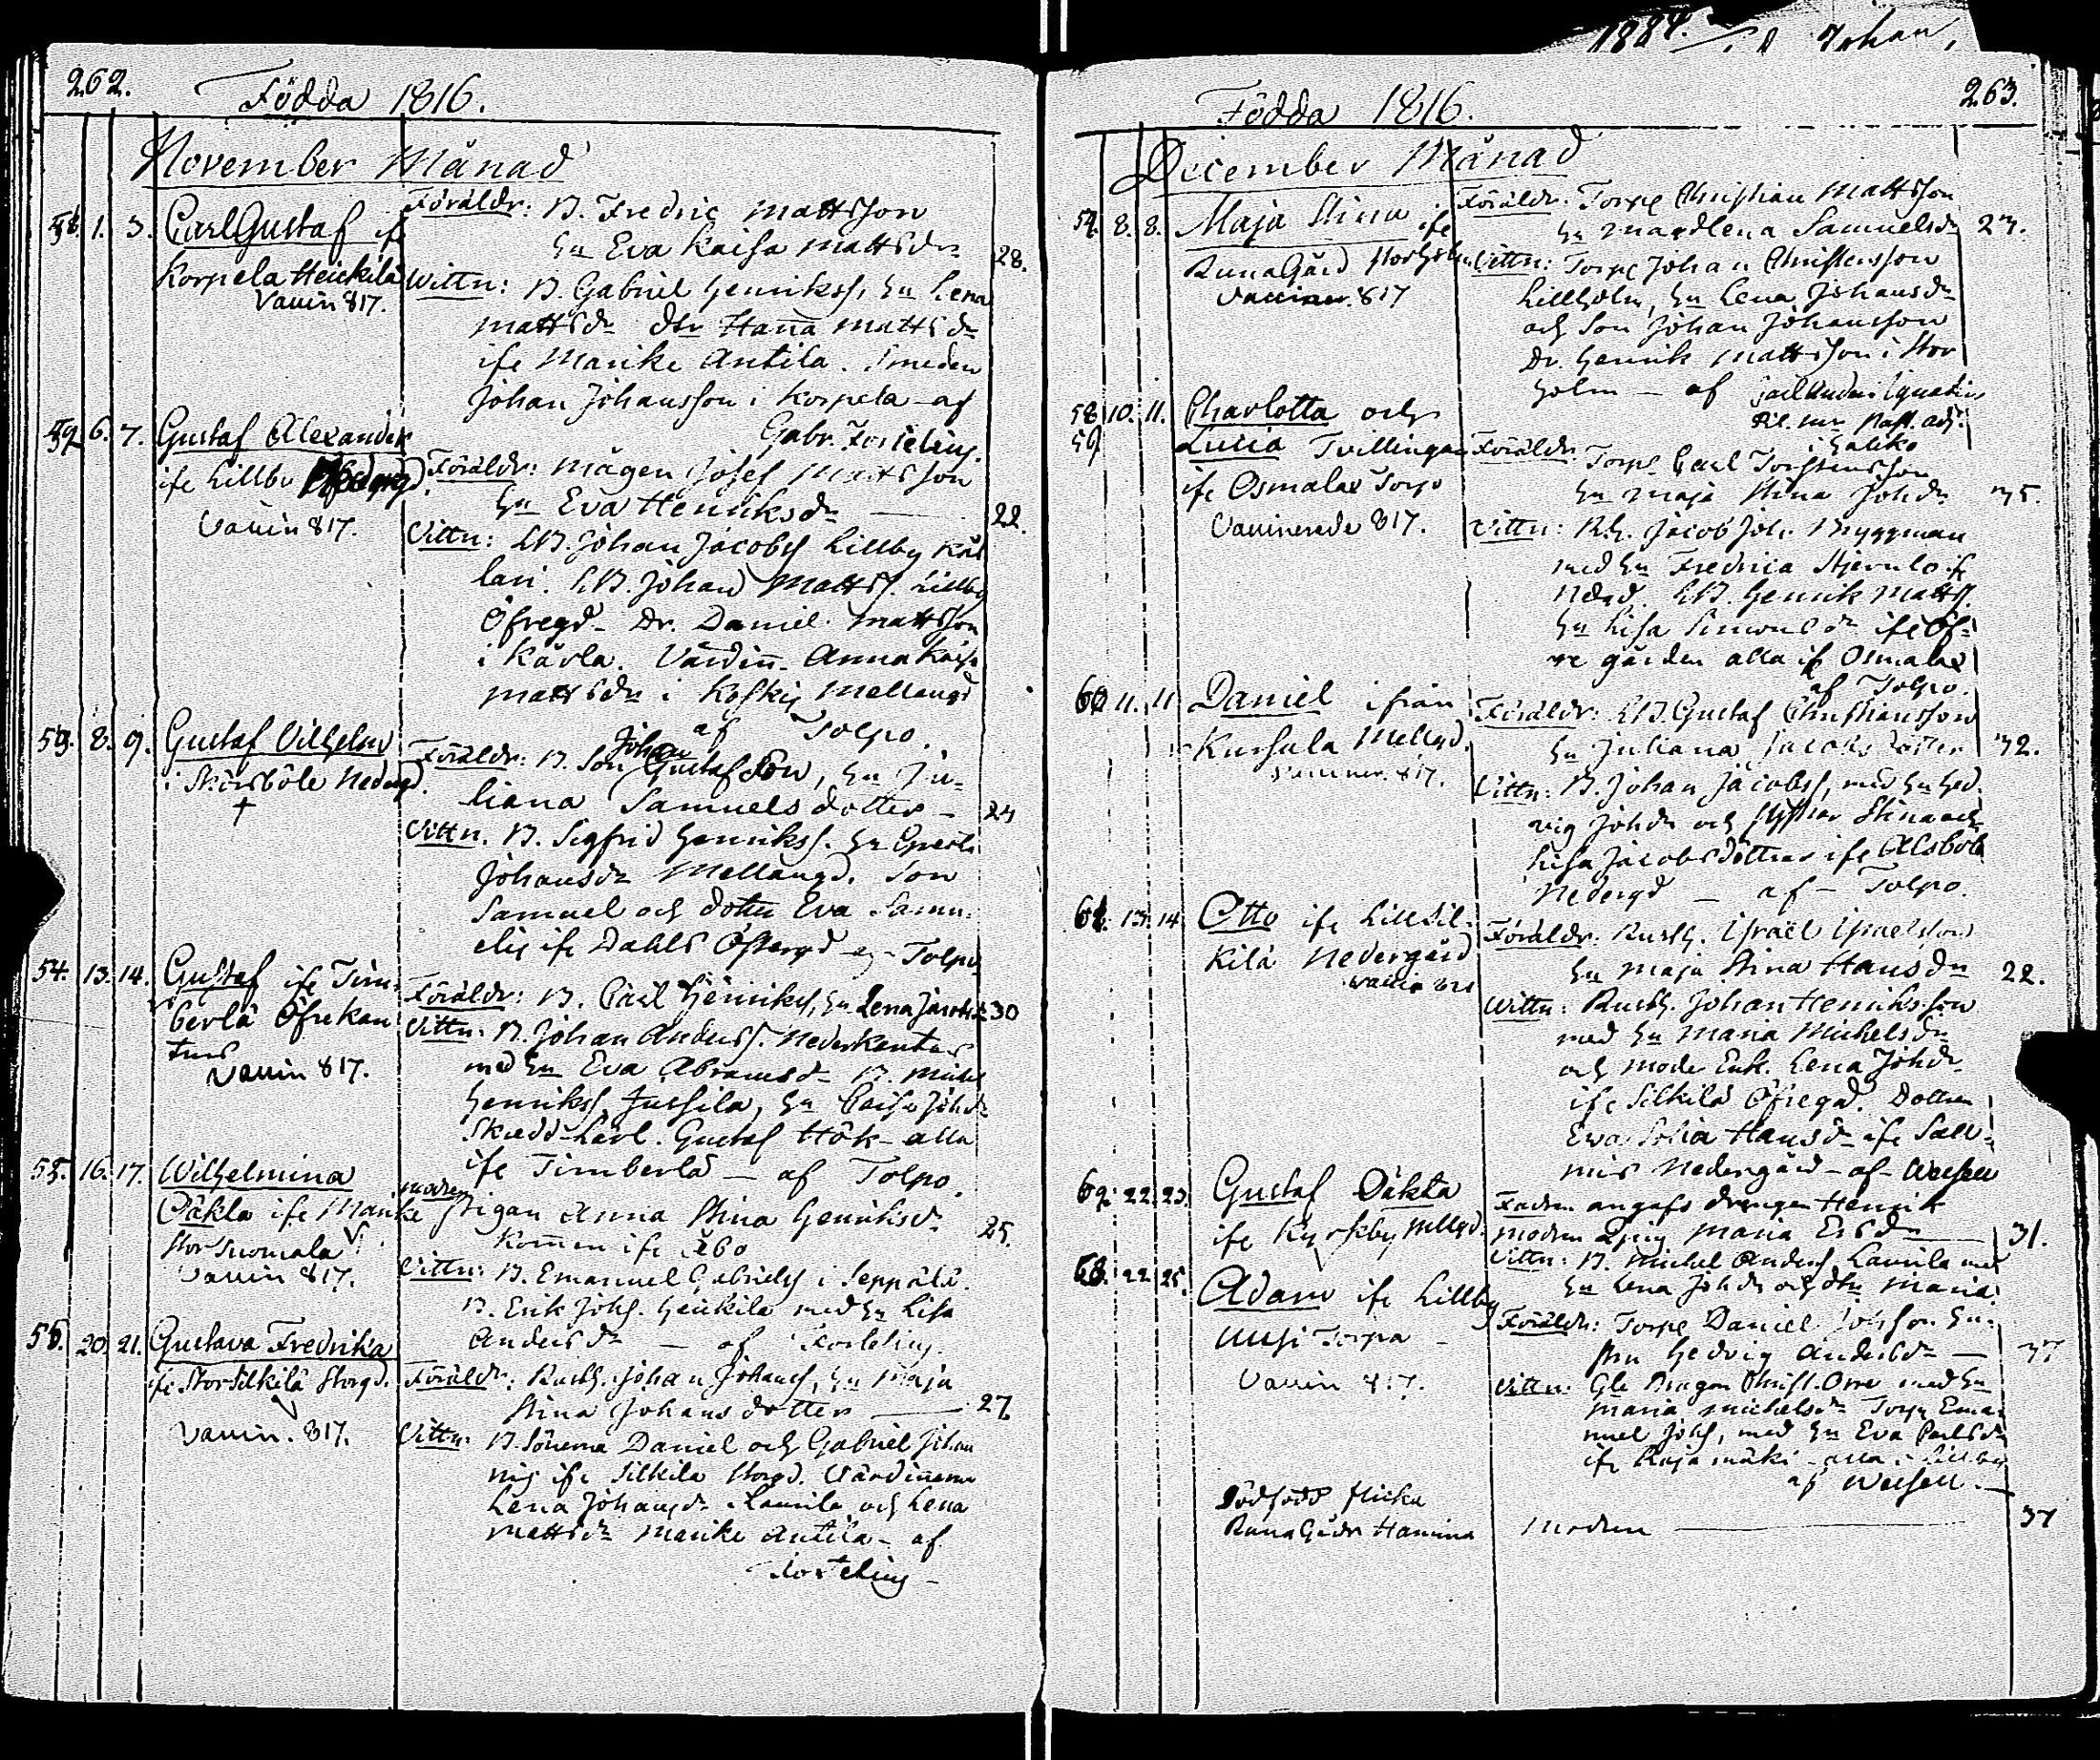 262.
Födda 1816.
November Månad
1. 3. Carl Gustaf ife
Korpela Heickilä
Vaccin 817.
Föräldr: B. Fredric Mattsson
hu Eva Kaisa Mattsdr 28.
Wittn: B. Gabriel Henrikss, hu Lena
Mattsdr dtr Hanna Mattsdr
ife Manike Antila. Smeden
Johan Johansson i Korpela af
Gabr. Forteliug.
6. 7. Gustaf Alexander
ife Lillby
Vaccin 817.
Föräldr: Mågen Josef Mattsson
hu Eva Henriksdr 22.
Vittn: LB. Johan Jacobss Lillby
LB. Johan Mattss. Lillby
Öfregd. Dr. Daniel Mattsson
i Kärla. Värdinn. Anna Kaisa
Mattsdr i Koski Mellangd
af Tolpo.
8. 9. Gustaf Vilhelm
i Skinsböle Nedergd.
†
Föräldr: B. Son Johan Gustafson, hu Ju-
liana Samuelsdotter 24
Vittn. B. Sigfrid Henrikss. hu
Johansdr Mellangd. Son
Samuel och dotter Eva Samu-
elis ife Dahls Öfvergd af Tolpo
54. 13. 14. Gustaf ife Tim-
berlä Öfrekan
tus
Vaccin 817.
Föräldr: B. Carl Henrikss, hu Lena 30
Vittn: B. Johan Anderss. Nederkentus
med hu Eva Abramsdr B. Michel
Henrikss Jussila, hu Caisa Johdr
Skrädd-Lärl. Gustaf Hök alla
ife Timberlä af Tolpo.
55. 16. 17. Wilhelmina
Oäkta ife Manike
Stor Suomala
Vaccin 817.
moder Pigan Anna Stina Henriksdr 25.
Kommen ife Åbo
Vittn: B. Emanuel Gabrielss i Seppälä.
B. Erik Johs. Heickilä med hu Lisa
Andersdr af Forteliug.
20. 21. Gustava Fredrika
ife Storsilkilä Storgd.
Vaccin. 817.
Föräldr: Rusth. Johan Johanss, hu Maja
Stina Johansdotter 27.
Vittn: B. Sönerna Daniel och Gabriel Johan
nis ife Silkila Storgd. Värdinnerna
Lena Johansdr Lamila och Lena
Mattsdr Manike Antila af
Forteliug
1884. Johan,
Födda 1816. 263.
December Månad
8. 8. Maja Stina ife
Runagård Storholm
Vacciner. 817
Föräldr: Torpe Christian Mattsson
hu Magdlena Samuelsdr 27.
Vittn: Torpe Johan Christersson
Lillholm, hu Lena Johansdr
och Son Johan Johansson
Dr. Henrik Mattsson i Stor
holm af
i Haliko
58 10. 11. Charlotta och
59 Lucia Tvillingar
ife Osmalax Torp
Vaccinerede 817.
Föräldr: Torpe Carl
hu Maja Stina Johdr 35.
Vittn: Rh. Jacob Joh. Bryggman
med hu Fredrica Stjernlo if
Ndgd. LB. Henrik Matts.
hu Lisa Simonsdr ife Öf-
re gården alla if Osmalax
af Tolpo.
60 11. 11 Daniel ifrån
Kursala Mellgd.
Vacciner. 817.
Föräldr: LB. Gustaf Christiansson
hu Juliana Jacobsdotter 32.
Vittn: B. Johan Jacobss, med hu Hed-
vig Johdr och Systrar Stina och
Lisa Jacobsdöttrar ife Alsböle
Nedergd af Tolpo.
13. 14 Otto ife Lillsil-
kilä Nedergård
Föräldr: Rusth. Israel Israelsson
hu Maja Stina Hansdr 22.
Wittn: Rusth. Johan Henriksson
med hu Maria Michelsdr
och moder Enk. Lena Johdr
ife Silkilä Öfregd. Dottren
Eva Sofia Hansdr ife
Nedergård af
22. 23. Gustaf Oäkta
ife Kyrkby Mellgd.
Fadren angafs drengen Henrik
modren Pig Maria Ersdr 31.
Vittn: B. Michel Anderss Lamila med
hu Lena Johdr och dtr Maria
22 25. Adam ife Lillby
Uusi Torpa
Vaccin 817.
Föräldr: Torpe Daniel Johsson hu-
stru Hedvig Andersdr 37
Vittn: Gle Christ. Orre med hu
Maria Michelsdr Torp Ema-
nuel Johs, med hu Eva Carlsdr
ife Rajamäki alla i Lillby
af
Dödfödd flicka
Runagårds Hamina Modren 37